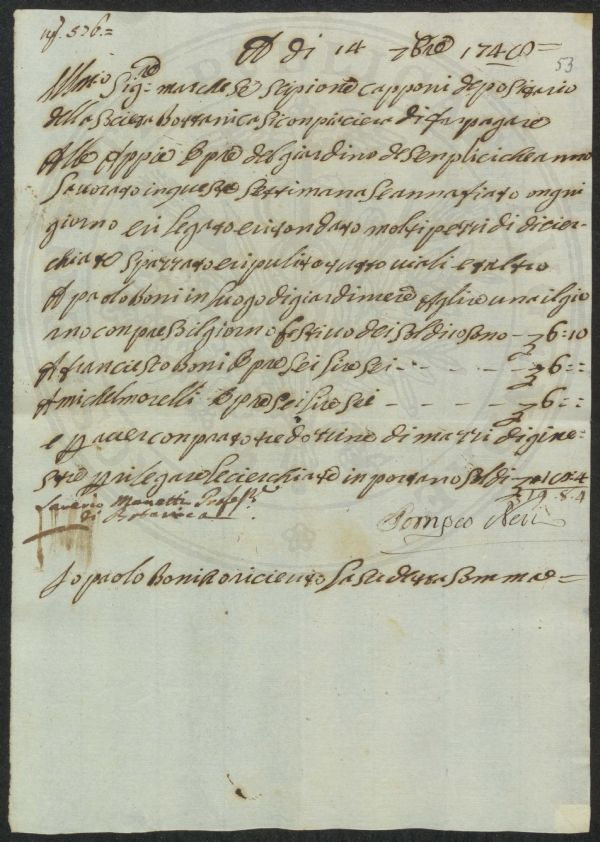 nº. 576.=
A di 14 7bre 1748=
53
Illmo Sigre marchese scipione Capponi depositario
della Societa bottanica si conpiaciera di far pagare
Alle Appie Opre del giardino de senplici che anno
Lavorato in questa Settimana e annafiato ongni
giorno e rilegato e ritondato molti pezzi di dicier-
chiate spazzato e ripulito tutto viali e altro
A paolo boni in luogo di giardiniere A lire una il gio
rno conpreso il giorno festivo dei Soldi Sono - 6:10
A franciesco boni Opre Sei Lire Sei - - - - 6::
A michel morelli Opre Sei Lire Sei - - - - 6::
e p aver conprato tre dotzine di mazzi di gine-
stre p rilegare le cierchiate inportano Soldi - 18:4
19.8.4
Saverio Manetti Profesre
di Botanica
Pompeo Neri
Io paolo boni o riceuto La Sudetta Somma=